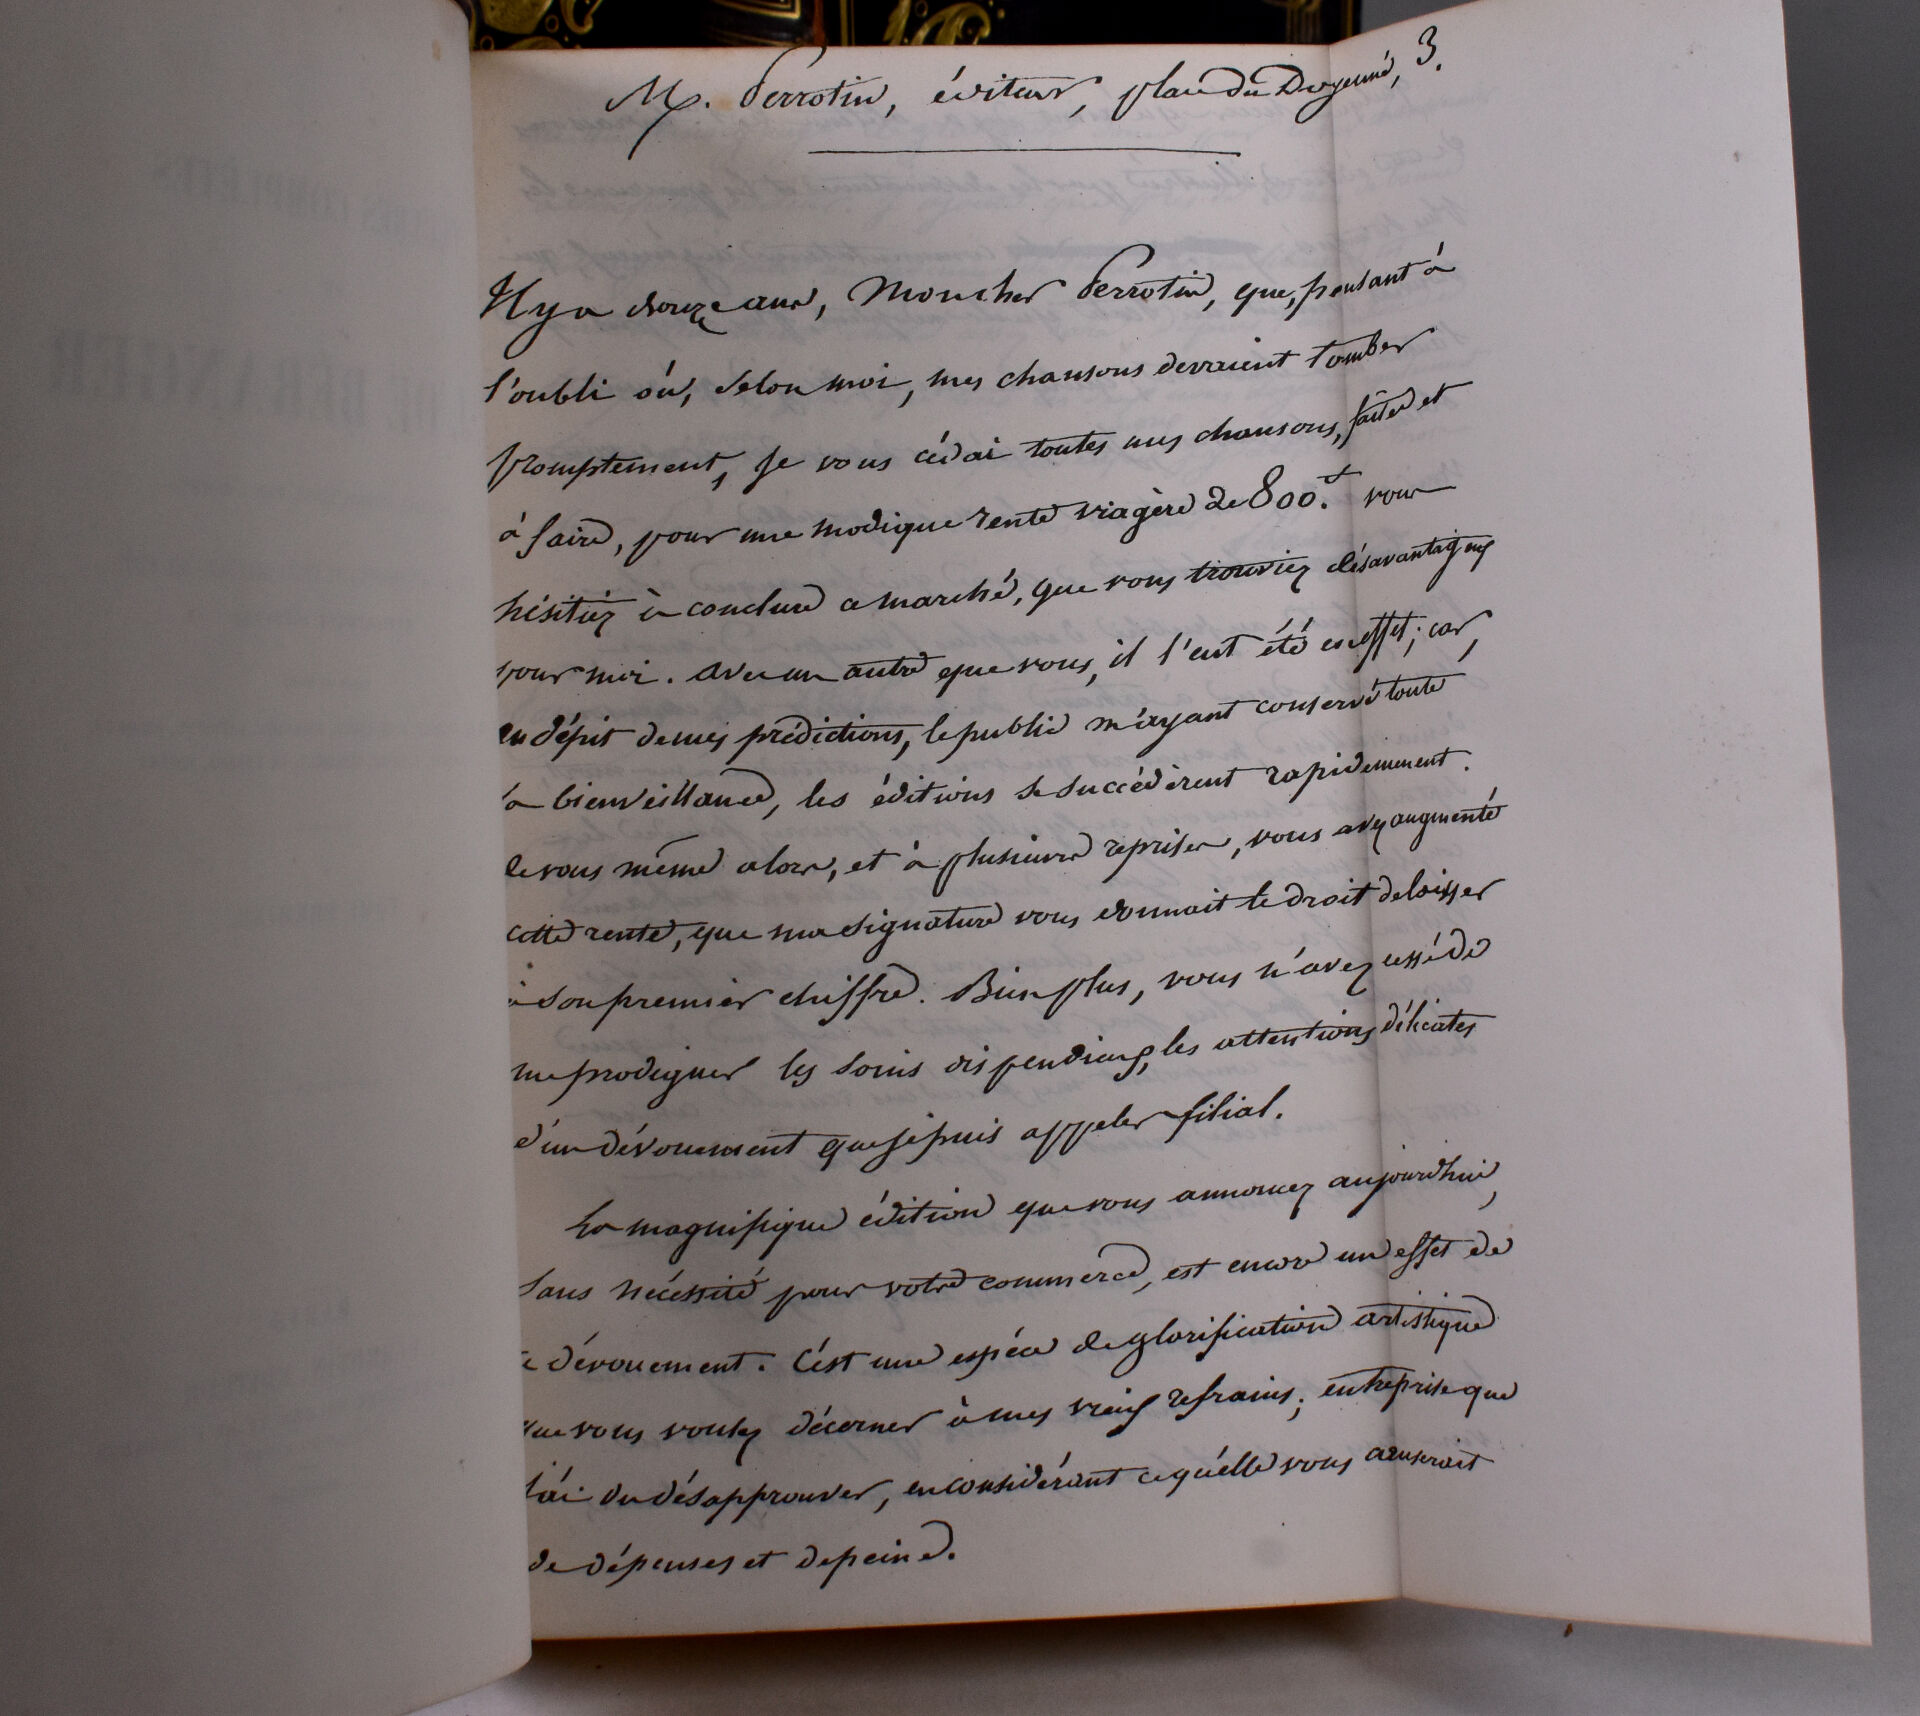 M. Perrotin, éditeur, place du Doyenné, 3.
Il y a douze ans, Mon cher Perrotin, que, pensant à
l'oubli où, selon moi, mes chansons devaient tomber
promptement, je vous cédai toutes mes chansons, faites et
à faire, pour une modique rente viagère de 800.f vous
hésitiez à conclure ce marché, que vous trouviez désavantageux
pour moi. Avec un autre que vous, il l'eut été en effet; car,
en dépit de mes prédictions, le public m'ayant conservé toute
sa bienveillance, les éditions se succédèrent rapidemement.
de vous même alors, et à plusieurs reprises, vous avez augmenté
cette rente, que ma signature vous donnait le droit de laisser
à son premier chiffre. Bien plus, vous n'avez cessé de
me prodiguer les soins dispendieux, les attentions délicates
d'un dévouement que je puis appeler filial.
La magnifique édition que vous annoncez aujourd'hui,
sans nécéssité pour votre commerce, est encore un effet de
ce dévouement. C'est une espéce de glorification artistique
que vous voulez décerner à mes vieux refrains; entreprise que
j'ai du désapprouver, en considérant ce qu'elle vous causerait
de dépenses et de peine.